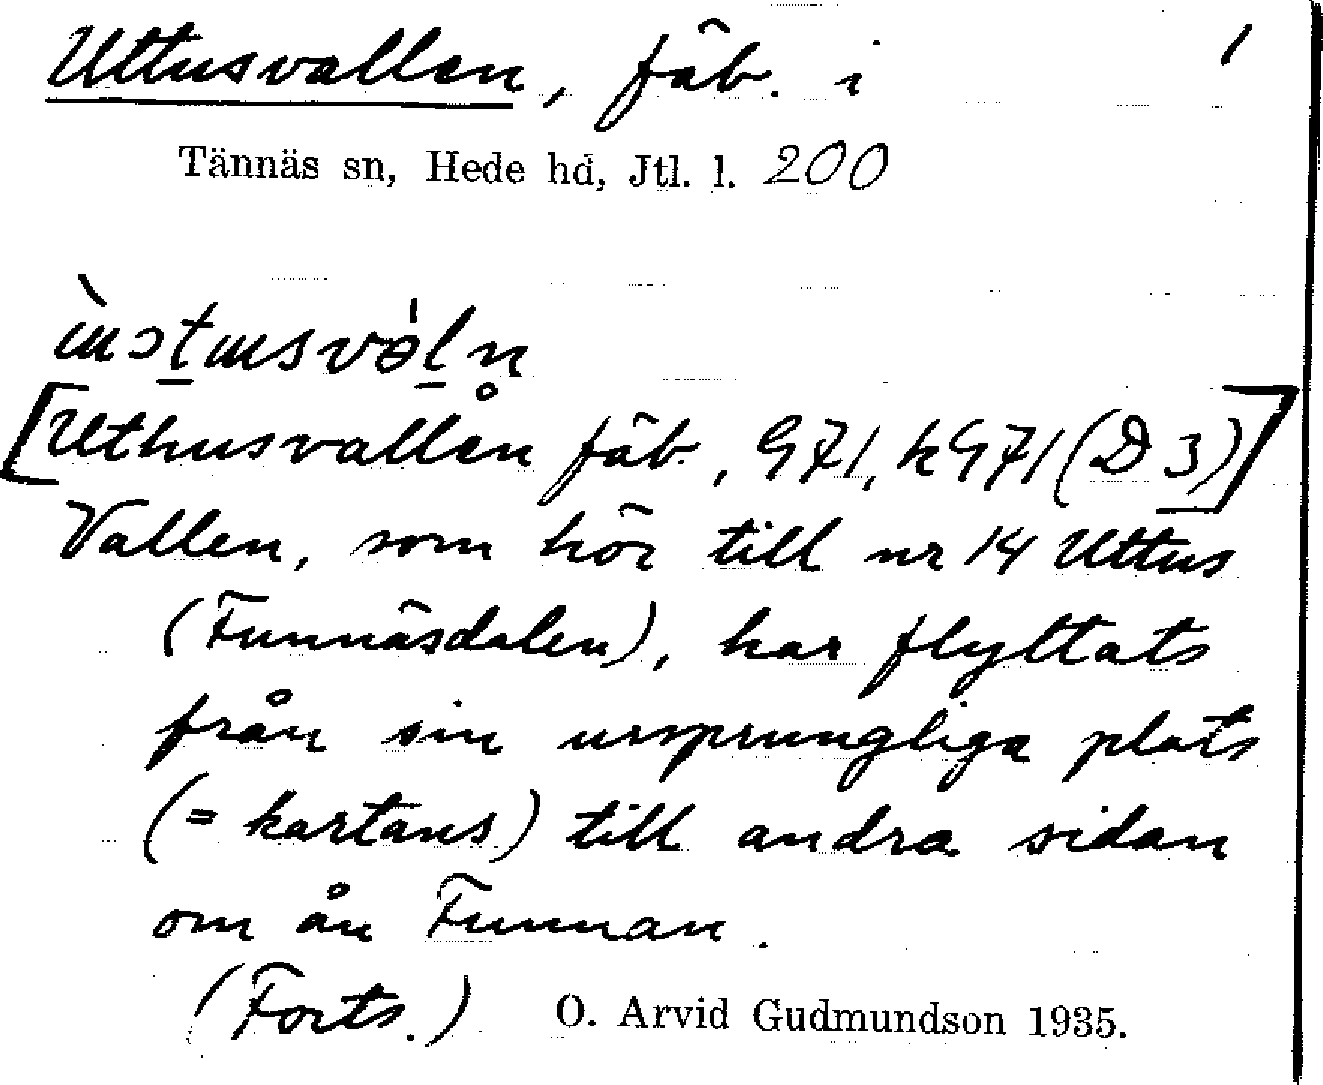 Uttusvallen, fäb. i 1
Tännäs sn, Hede hd, Jtl. l. 200
[Uthusvallån fäb., G71, kG71 (D 3)]
Vallen, som hör till nr 14 Uttus
(Funnäsdalen), har flyttats
från sin ursprungliga plats
(= kartans) till andra sidan
om ån Funnan.
(Forts.) O. Arvid Gudmundson 1935.